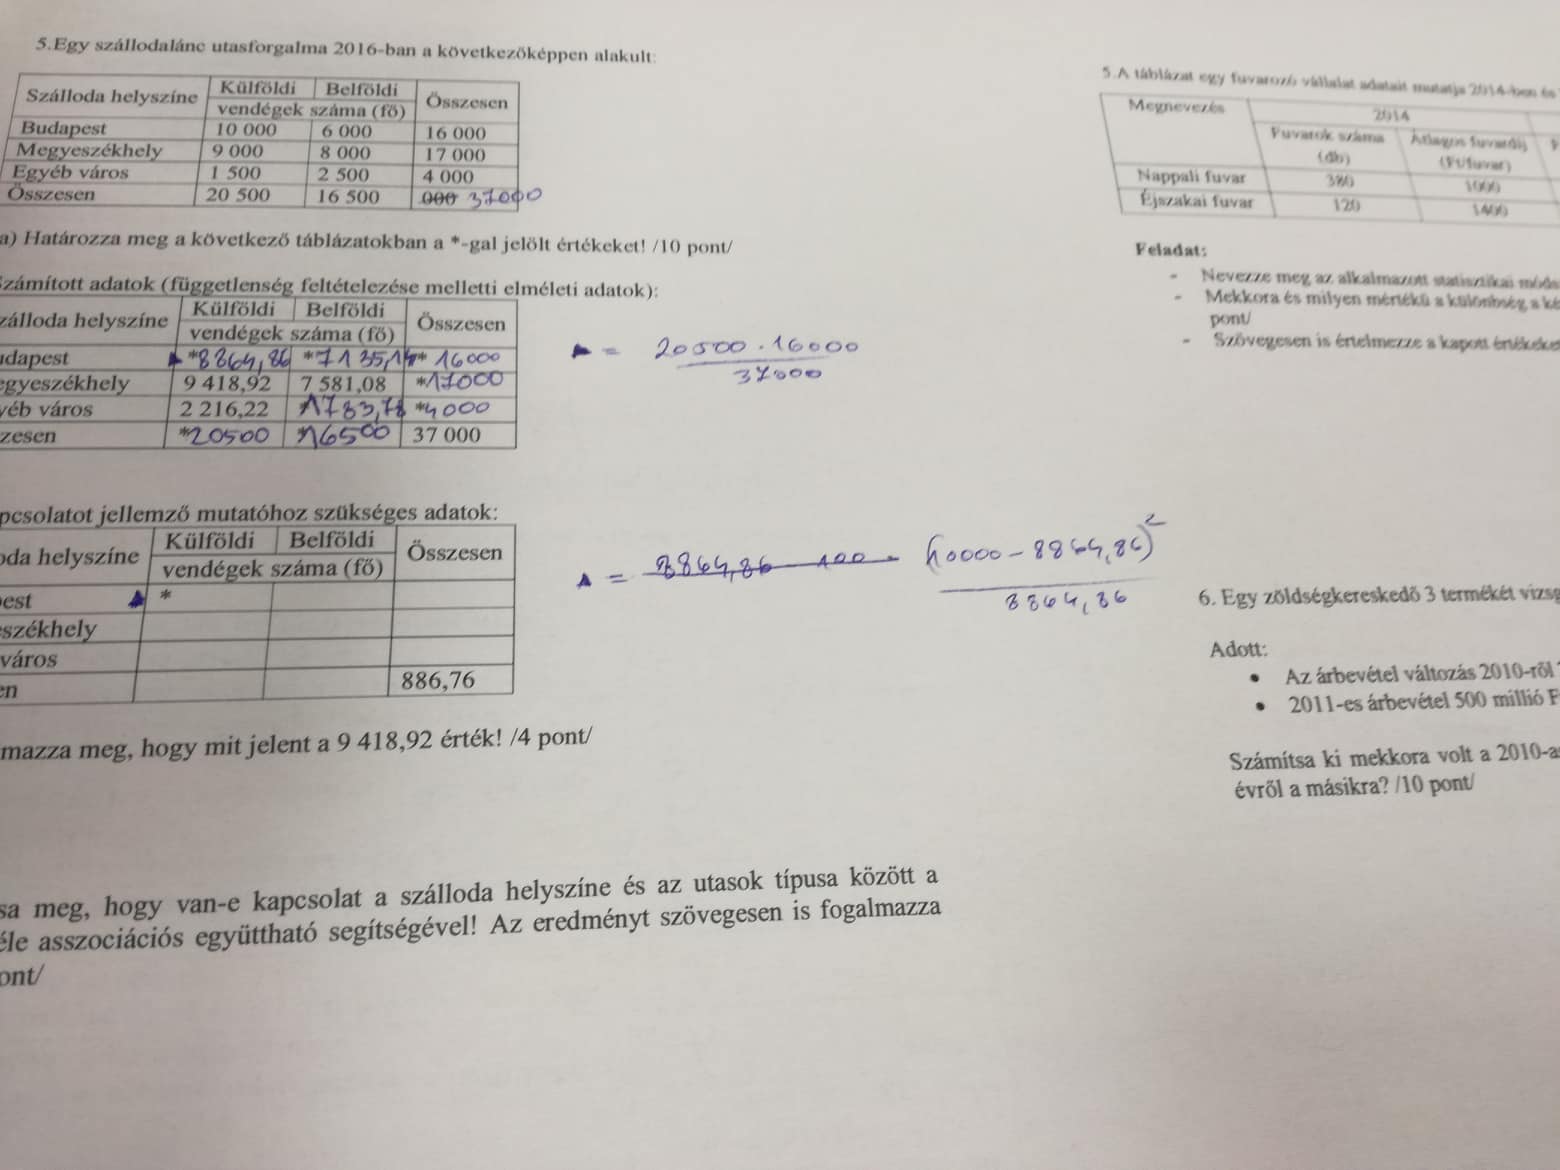 5.Egy szállodalánc utasforgalma 2016-ban a következőképpen alakult:
Szálloda helyszíne Külföldi Belföldi Összesen
vendégek száma (fő)
Budapest 10 000 6 000 16 000
Megyeszékhely 9 000 8 000 17 000
Egyéb város 1 500 2 500 4 000
Összesen 20 500 16 500 000 37000
a) Határozza meg a következő táblázatokban a *-gal jelölt értékeket! /10 pont/
zámított adatok (függetlenség feltételezése melletti elméleti adatok):
zálloda helyszíne Külföldi Belföldi Összesen
vendégek száma (fő)
udapest *8864,86 *7135,14 * 16000
egyeszékhely 9 418,92 7 581,08 *17000
yéb város 2 216,22 *1783,78 *4000
zesen *20500 *16500 37 000
= 20500 · 16000
37000
pcsolatot jellemző mutatóhoz szükséges adatok:
oda helyszíne Külföldi Belföldi Összesen
vendégek száma (fő)
pest *
székhely
város
en 886,76
= 8864,86 100 (10000 - 8864,86)²
8864,86
mazza meg, hogy mit jelent a 9 418,92 érték! /4 pont/
sa meg, hogy van-e kapcsolat a szálloda helyszíne és az utasok típusa között a
éle asszociációs együttható segítségével! Az eredményt szövegesen is fogalmazza
ont/
5.A táblázat egy fuvarozó vállalat adatait mutatja 2014-ben és
Megnevezés 2014
Fuvarok száma Átlagos fuvardíj
(db) (Ft/fuvar)
Nappali fuvar 380 1000
Éjszakai fuvar 120 1400
Feladat:
- Nevezze meg az alkalmazott statisztikai móds
- Mekkora és milyen mértékű a különbség a ké
pont/
- Szövegesen is értelmezze a kapott értékeke
6. Egy zöldségkereskedő 3 termékét vizsg
Adott:
• Az árbevétel változás 2010-ről
• 2011-es árbevétel 500 millió F
Számítsa ki mekkora volt a 2010-a
évről a másikra? /10 pont/